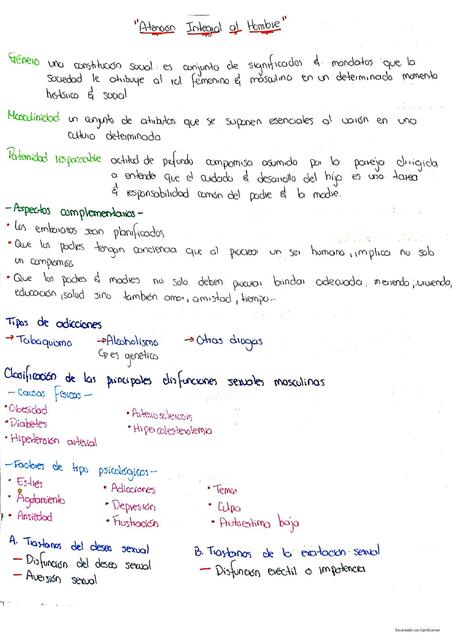 "Atención Integral al Hombre"
Género una constitución social es conjunto de significados & mandatos que la
sociedad le atribuye al rol femenino & masculino en un determinado momento
histórico & social
Masculinidad un conjunto de atributos que se suponen esenciales al varón en una
cultura determinada
Paternidad responsable actitud de profundo compromiso asumido por la pareja dirigida
a entender que el cuidado & desarrollo del hijo es una tarea
& responsabilidad común del padre & la madre.
- Aspectos complementarios -
• Los embarazos sean planificados
• Que los padres tengan conciencia que al procrear un ser humano, implica no solo
un compromiso
• Que los padres & madres no solo deben procurar brindar adecuada, vivienda,
educación, salud sino también amor, amistad, tiempo...
Tipos de adicciones
→ Tabaquismo → Alcoholismo → Otras drogas
↳ es genético
Clasificación de las principales disfunciones sexuales masculinas
- Causas físicas -
• Obesidad • Arterosclerosis
• Diabetes • Hipercolesterolemia
• Hipertensión arterial
- Factores de tipo psicológicos -
• Estrés • Adicciones • Temor
• Agotamiento • Depresión • Culpa
• Ansiedad • Frustración • Autoestima baja
A. Trastornos del deseo sexual B. Trastornos de la excitación sexual
- Disfunción del deseo sexual - Disfunción eréctil o impotencia
- Aversión sexual
Escaneado con CamScanner